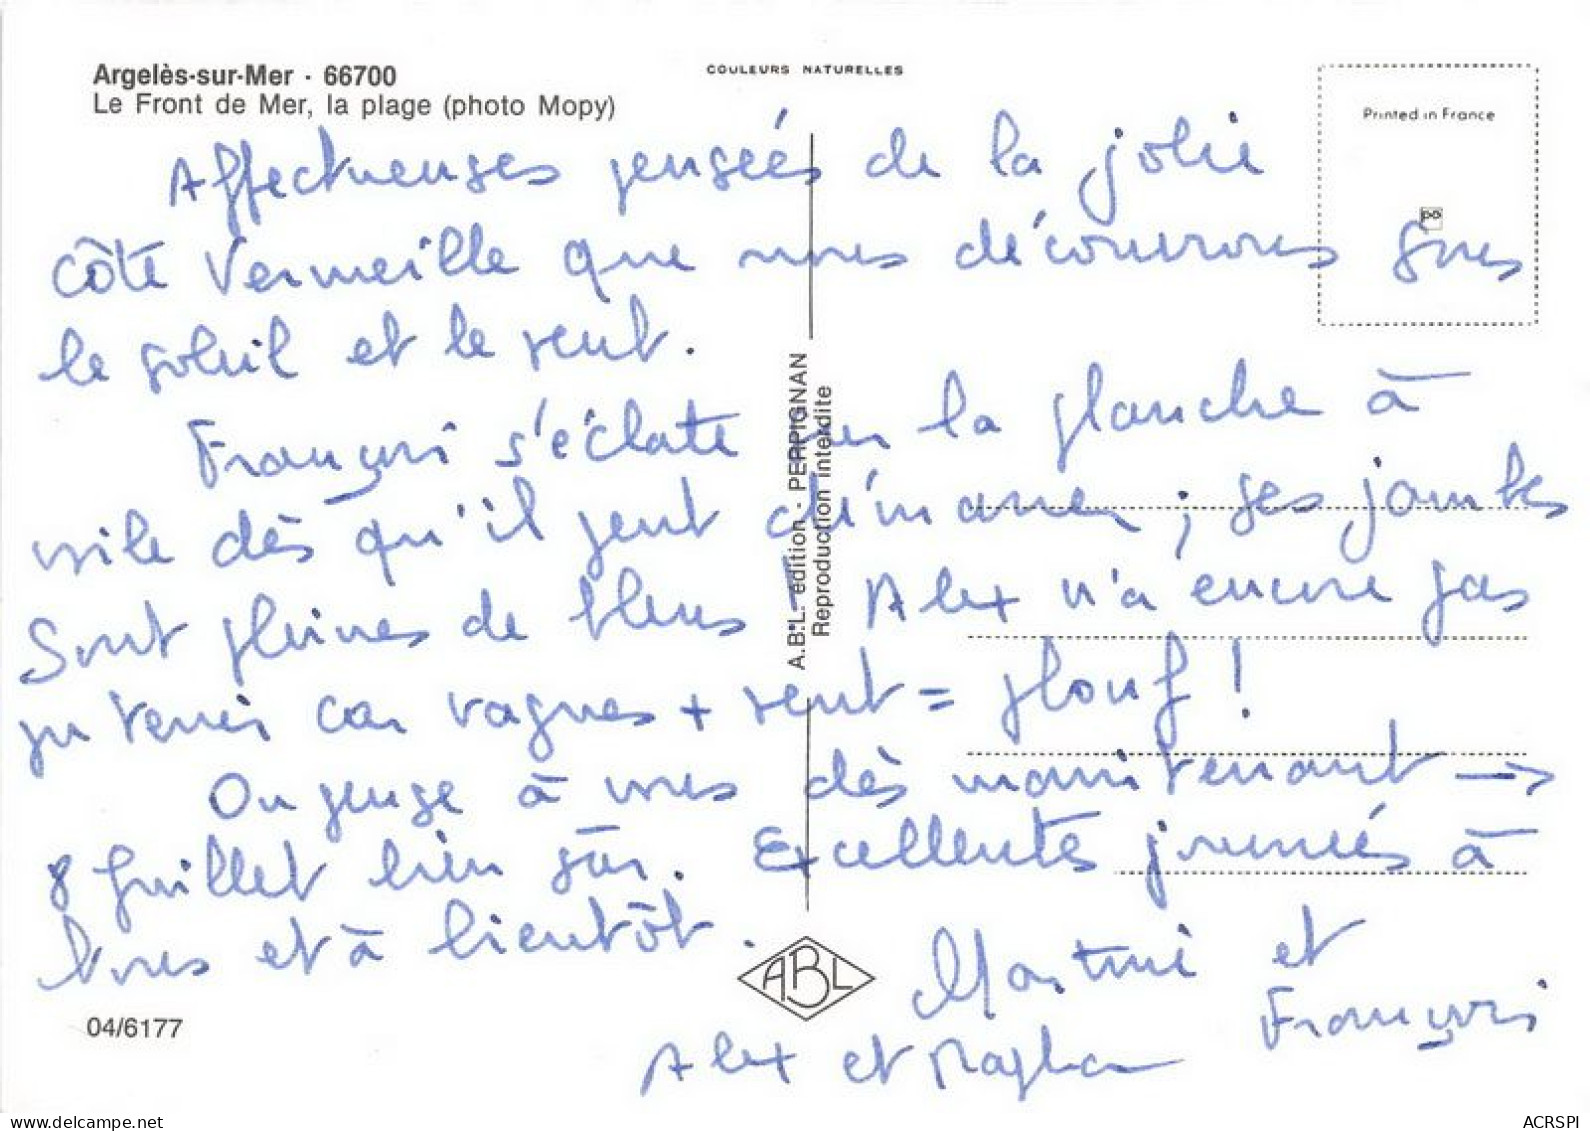 Argelès-sur-Mer · 66700
Le Front de Mer, la plage (photo Mopy)
COULEURS NATURELLES
Printed in France
Affectueuses pensées de la jolie
côte Vermeille que nous découvrons sous
le soleil et le vent.
François s'éclate sur la planche à
voile dès qu'il peut démarrer ; ses jambes
sont pleines de bleus - Alex n'a encore pas
pu tenir car vagues + vent = plouf !
On pense à vous dès maintenant →
8 Juillet bien sûr. Excellentes journées à
tous et à bientôt.
Martine et
François
Alex et
A.B.L. édition - PERPIGNAN
Reproduction interdite
ABL
04/6177
www.delcampe.net
ACRSPI